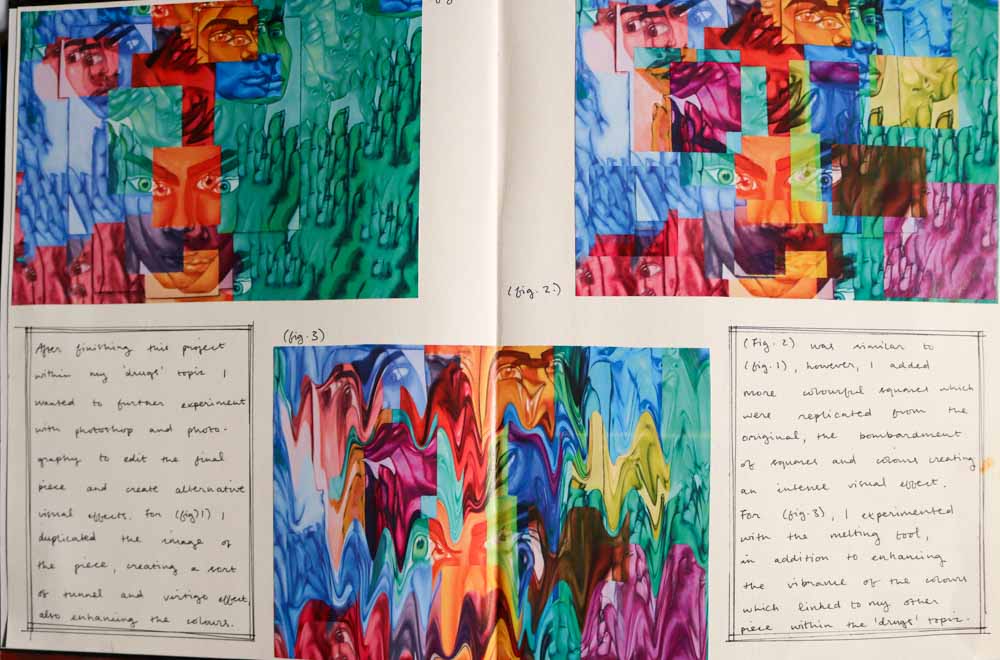 (fig. 2)
After finishing this project
within my 'drugs' topic I
wanted to further experiment
with photoshop and photo-
graphy to edit the final
piece and create alternative
visual effects. For (fig)1) I
duplicated the image of
the piece, creating a sort
of tunnel and virtigo effect,
also enhancing the colours.
(fig. 3)
(Fig. 2) was similar to
(fig. 1), however, I added
more colourful squares which
were replicated from the
original, the bombardment
of squares and colours creating
an intense visual effect.
For (fig. 3), I experimented
with the melting tool,
in addition to enhancing
the vibrance of the colours
which linked to my other
piece within the 'drugs' topic.